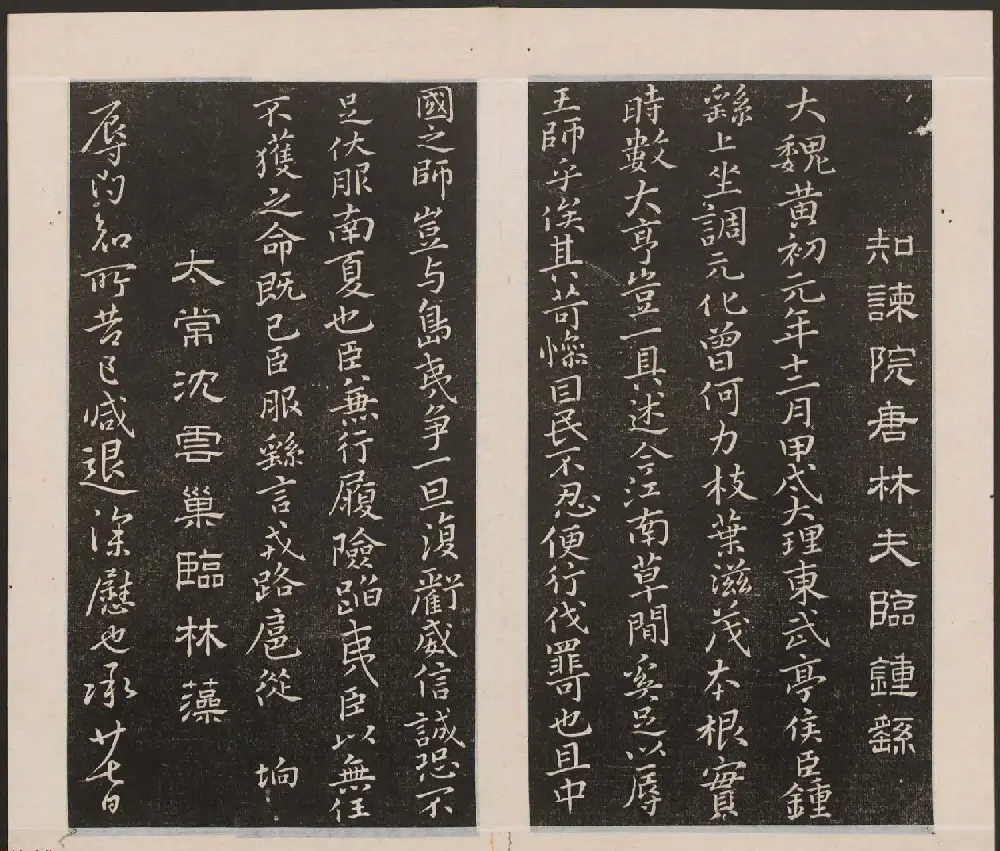 知諫院唐林夫臨鍾繇
大魏黃初元年十二月甲戌大理東武亭侯臣鍾
繇上坐調元化曾何力枝葉滋茂本根實
時數大亨豈一具述今江南草間奚足以辱
王師乎俟其苛慘自民不忍便行伐罪可也且中
國之師豈与島夷爭一旦復虧威信誠恐不
足伏服南夏也臣無行履險蹈夷臣以無任
不獲之命既已臣服繇言戎路扈從 坰
太常沈雲巢臨林藻
辱問知所苦已減退深慰也承廿七日